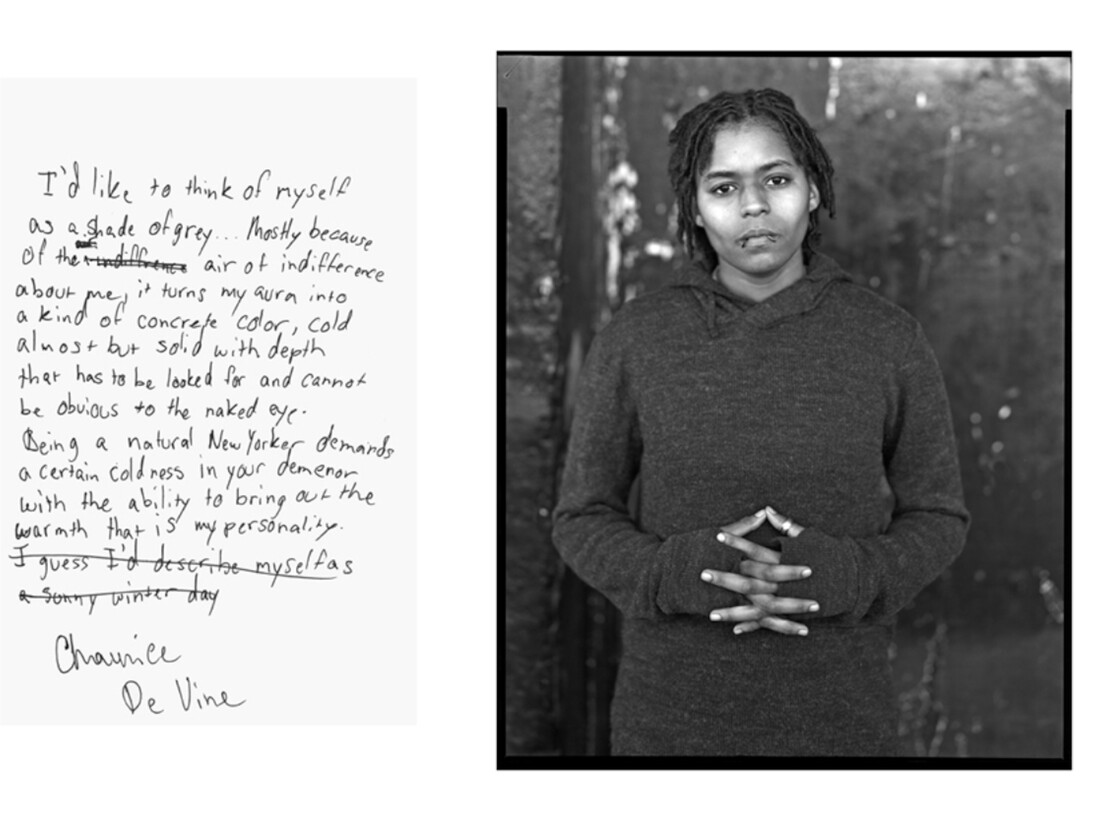 I'd like to think of myself
as a shade of grey... Mostly because
of the indiffrence air of indifference
about me, it turns my aura into
a kind of concrete color, cold
almost but solid with depth
that has to be looked for and cannot
be obvious to the naked eye.
Being a natural New Yorker demands
a certain coldness in your demenor
with the ability to bring out the
warmth that is my personality.
I guess I'd describe myself as
a sunny winter day
Chaunice
De Vine